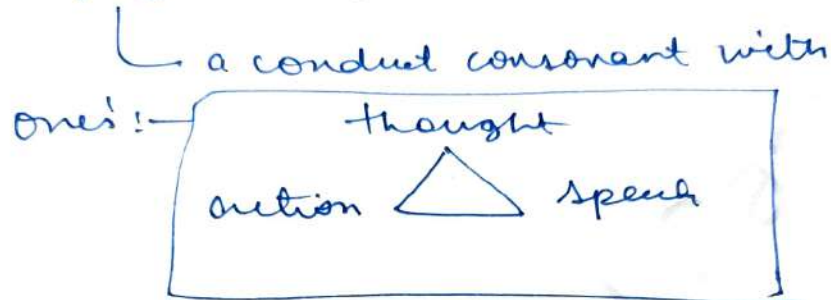 a conduct consonant with
ones':-
thought
action speech